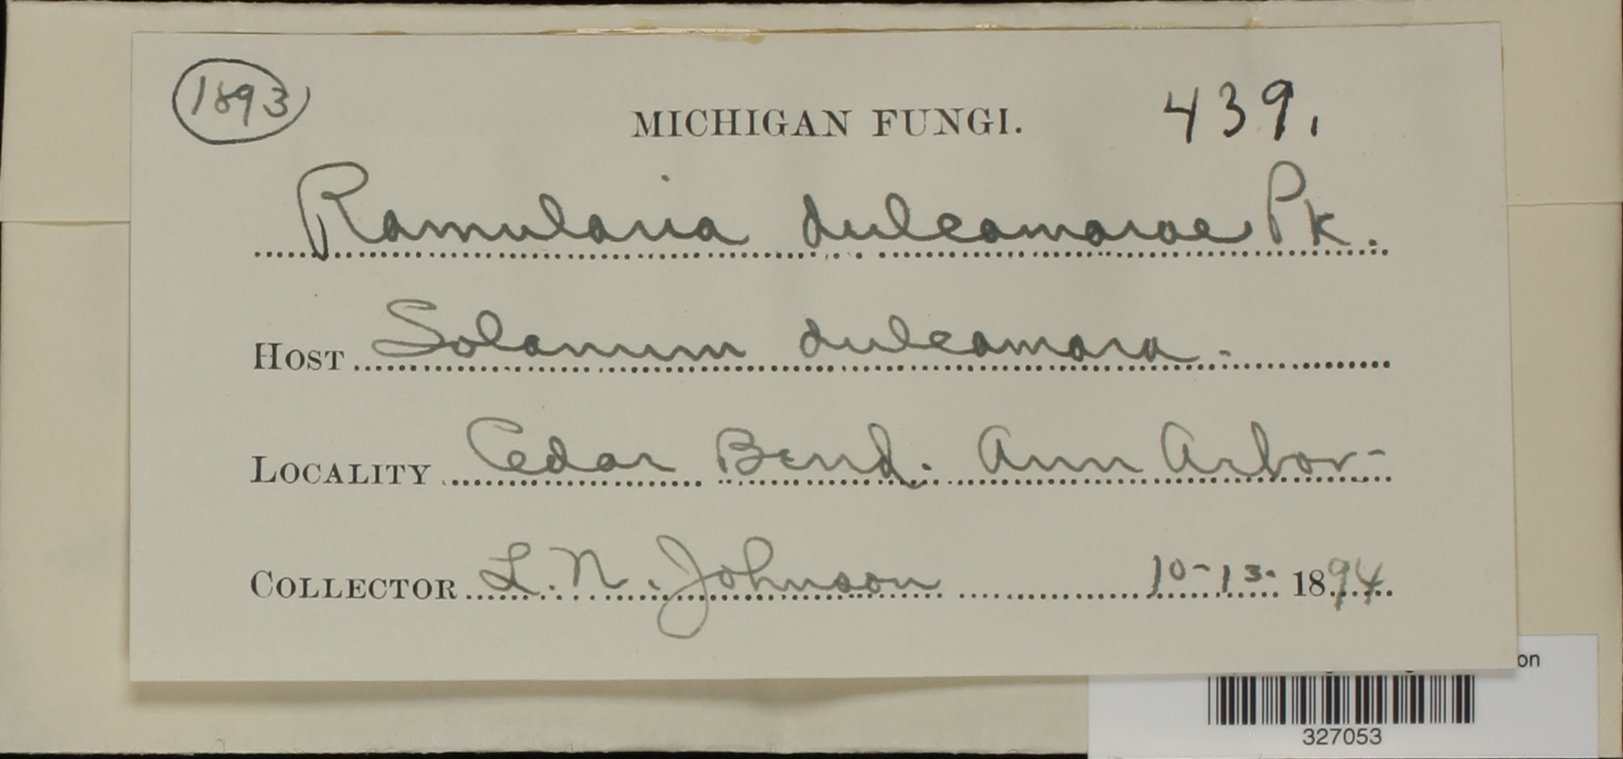 1893
MICHIGAN FUNGI. 439.
Ramularia dulcamarae Pk.
HOST Solanum dulcamara.
LOCALITY Cedar Bend. Ann Arbor-
COLLECTOR L. N. Johnson 10-13- 1894
on
327053